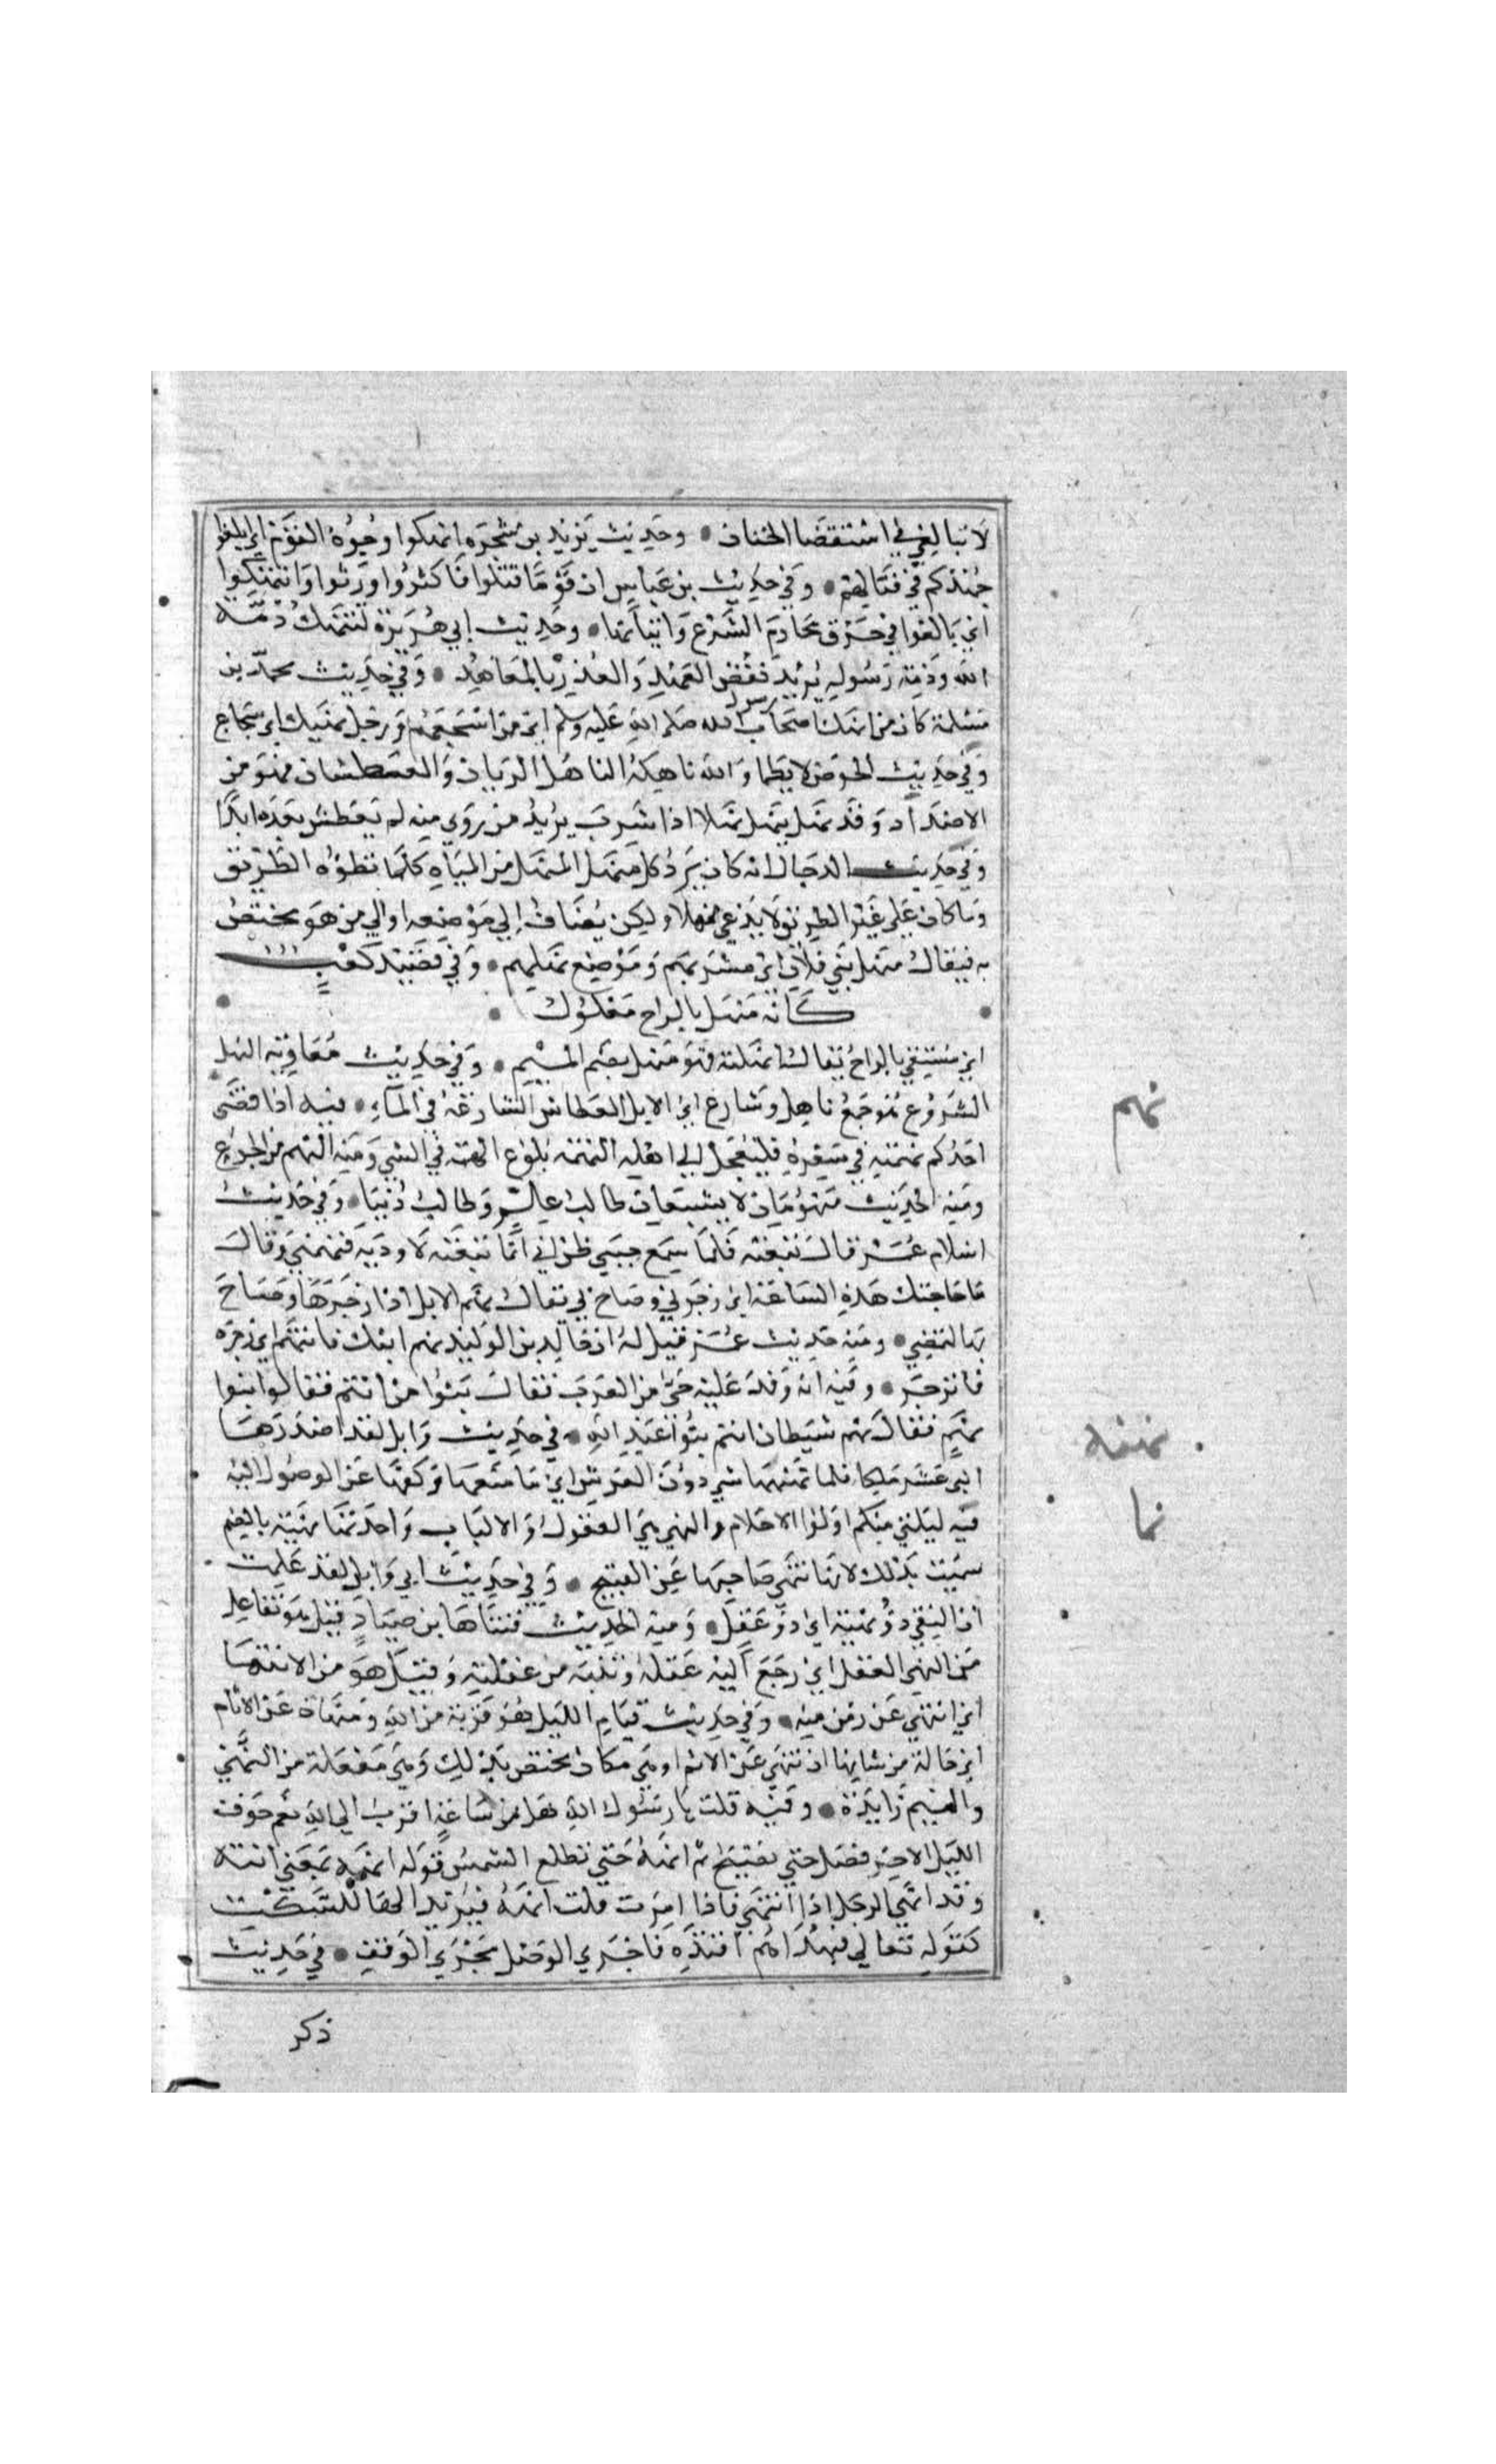 لا تبالغي في استقصا الختان • وحديث يزيد بن شجره انهكوا وجوه القوم اي ابلغوا
جهدكم في قتالهم • وفي حديث بن عباس ان قوما قتلوا فاكثروا وزنوا وانتهكوا
اي بالغوا في خرق محارم الشرع واتيانها • وحديث ابي هريرة تنتهك ذمة
الله وذمة رسوله يريد نقض العهد والغدر بالمعاهد • وفي حديث محمد بن
مسلمة كان من انهك اصحاب رسول الله صلى الله عليه وسلم اي من اشجعهم ورجل نهيك اي شجاع
وفي حديث الحوض لا يظما والله ناهله الناهل الريان والعطشان فهو من
الاضداد وقد نهل ينهل نهلا اذا شرب يريد من روي منه لم يعطش بعده ابدا
وفي حديث الدجال انه كان يرد كل منهل المنهل من المياه كلما تطؤه الطريق
وما كان على غير الطريق لا يدعى منهلا ولكن يضاف الي موضعه او الي من هو مختص
به فيقال منهل بني فلان اي مشربهم وموضع نهلهم • وفي قصيد كعب
كانه منهل بالراح معلول
اي مسقي بالراح يقال انهلته فهو منهل بضم الميم • وفي حديث معاوية النهل
الشروع هو جمع ناهل وشارع اي الابل العطاش الشارعة في الماء • فيه اذا قضى
احدكم نهمته في سفره فليعجل الي اهله النهمة بلوغ الهمة في الشي ومنه النهم من الجوع
ومنه الحديث منهومان لا يشبعان طالب علم وطالب دنيا • وفي حديث
اسلام عمر قال تبعته فلما سمع حسي ظن اني انما تبعته لاوذيه فنهمني وقال
ما حاجتك هذه الساعة اي زجرني وصاح بي يقال نهم الابل اذا زجرها وصاح
بها لتمضي • ومنه حديث عمر قيل له ان خالد بن الوليد نهم ابنك فانتهم اي زجره
فانزجر • وفيه انه وفد عليه حي من العرب فقال بنوا من انتم فقالوا بنوا
نهم فقال نهم شيطان انتم بنوا عبد الله • في حديث وابل لقد ابتدرها
اثنى عشر ملكا فلما نهنهها شي دون العرش اي ما منعها وكفها عن الوصول اليه
فيه ليلني منكم اولوا الاحلام والنهى هي العقول والالباب واحدتها نهية بالضم
سميت بذلك لانها تنهي صاحبها عن القبيح • وفي حديث ابي وايل لقد علمت
ان التقي ذو نهية اي ذو عقل • ومنه الحديث فتناها بن صياد قيل هو تفاعل
من النهي العقل اي رجع اليه عقله وتنبه من غفلته وقيل هو من الانتها
اي انتهي عن زمزمته • وفي حديث قيام الليل هو قربة من الله ومنهاة عن الاثام
اي حالة من شانها ان تنهي عن الاثم او هي مكان مختص بذلك وهي مفعلة من النهي
والميم زايدة • وفيه قلت يا رسول الله هل من ساعة اقرب الي الله نعم جوف
الليل الاخير فصل حتي تصبح ثم انهه حتي تطلع الشمس قوله انهه بمعني انته
وقد انهي الرجل اذا انتهي فاذا امرت قلت انهه فيزيد الها للسكت
كقوله تعالي فبهداهم اقتده فاجري الوصل مجري الوقف • في حديث
ذكر
نهم
نهنه
نها